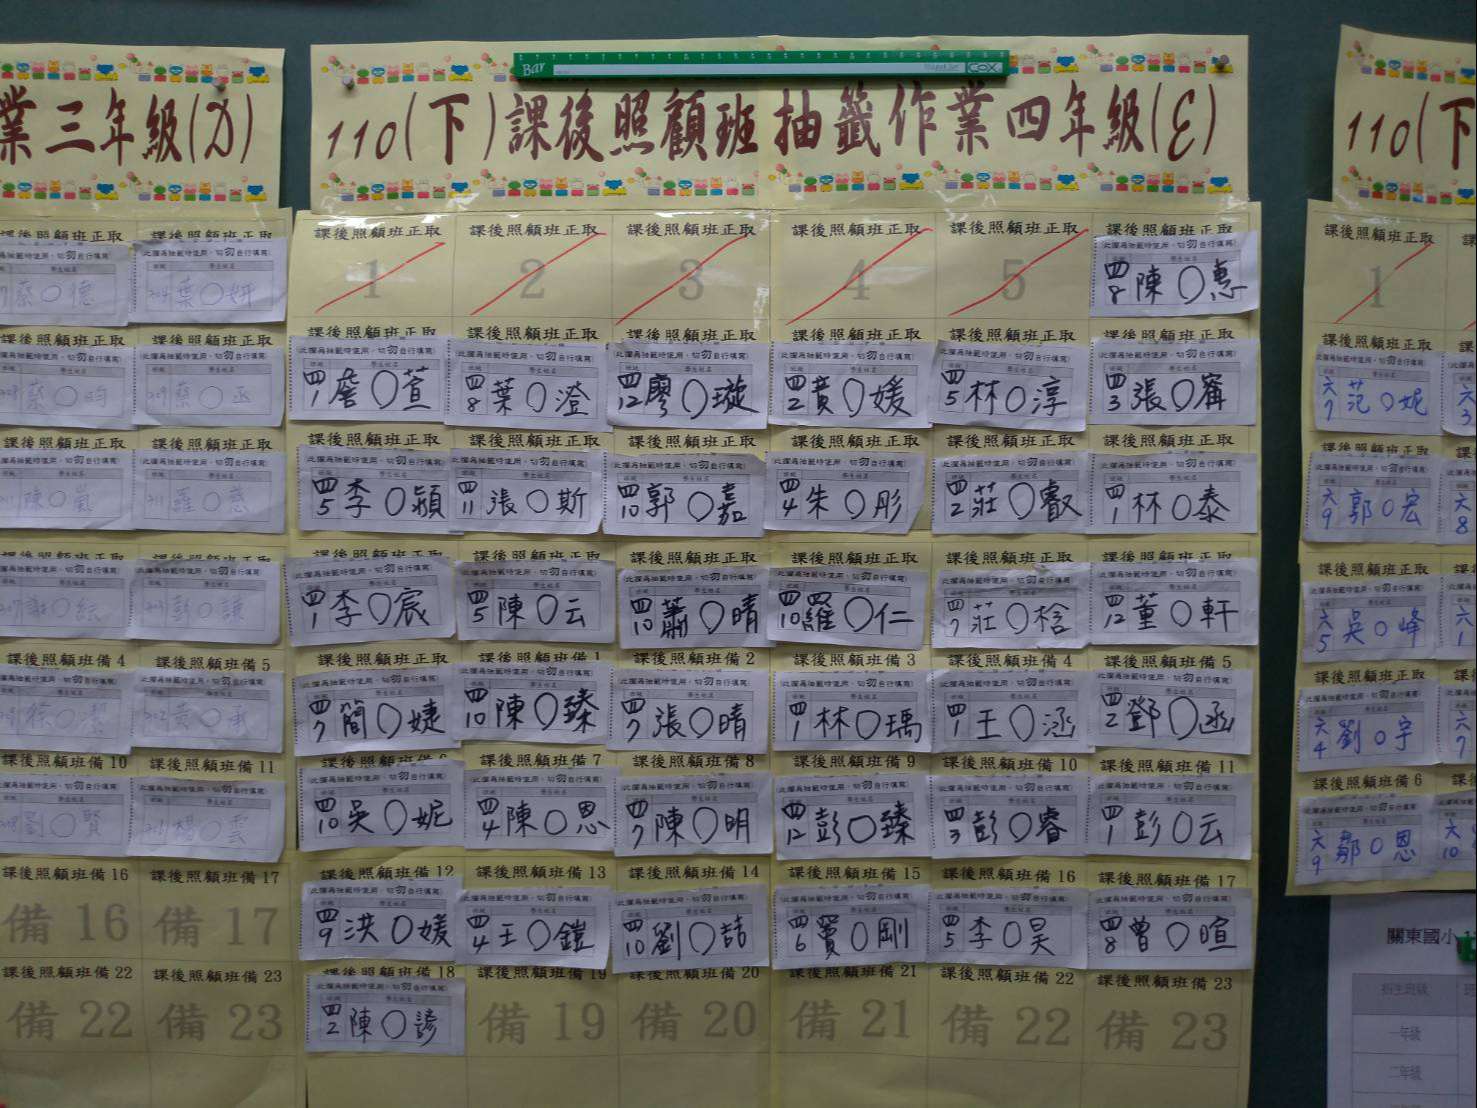 業三年級(D)
110(下)課後照顧班 抽籤作業四年級(E)
110(下
Bar COX
課後照顧班正取 課後照顧班正取 課後照顧班正取 課後照顧班正取 課後照顧班正取
1 2 3 4 5
此欄為抽籤時使用,切勿自行填寫
班級 學生姓名
四8 陳○惠
課後照顧班正取 課後照顧班正取 課後照顧班正取 課後照顧班正取 課後照顧班正取 課後照顧班正取
四1 詹○萱 四8 葉○澄 四12 廖○璇 四2 黃○媛 四5 林○淳 四3 張○甯
課後照顧班正取 課後照顧班正取 課後照顧班正取 課後照顧班正取 課後照顧班正取 課後照顧班正取
四5 李○穎 四11 張○斯 四10 郭○嘉 四4 朱○彤 四2 莊○叡 四1 林○泰
課後照顧班正取 課後照顧班正取 課後照顧班正取 課後照顧班正取 課後照顧班正取 課後照顧班正取
四1 李○宸 四5 陳○云 四10 蕭○晴 四10 羅○仁 四7 莊○桰 四12 董○軒
課後照顧班正取 課後照顧班備 1 課後照顧班備 2 課後照顧班備 3 課後照顧班備 4 課後照顧班備 5
四7 簡○婕 四10 陳○臻 四7 張○晴 四1 林○瑀 四1 王○涵 四2 鄧○函
課後照顧班備 7 課後照顧班備 8 課後照顧班備 9 課後照顧班備 10 課後照顧班備 11
四10 吳○妮 四4 陳○恩 四7 陳○明 四12 彭○臻 四3 彭○睿 四1 彭○云
課後照顧班備 12 課後照顧班備 13 課後照顧班備 14 課後照顧班備 15 課後照顧班備 16 課後照顧班備 17
四9 洪○媛 四4 王○鎧 四10 劉○喆 四6 賈○剛 四5 李○昊 四8 曾○暄
課後照顧班備 18 課後照顧班備 19 課後照顧班備 20 課後照顧班備 21 課後照顧班備 22 課後照顧班備 23
四2 陳○諺 備 19 備 20 備 21 備 22 備 23
課後照顧班正取 課後照顧班正取
葉○妍
課後照顧班備 4 課後照顧班備 5
課後照顧班備 10 課後照顧班備 11
劉○賢 楊○雲
課後照顧班備 16 課後照顧班備 17
備 16 備 17
課後照顧班備 22 課後照顧班備 23
備 22 備 23
課後照顧班正取
1
課後照顧班正取
六7 范○妮 六3
課後照顧班正取
六9 郭○宏 六8
課後照顧班正取
六5 吳○峰 六1
課後照顧班正取
六4 劉○宇 六7
課後照顧班備 6
六9 鄒○恩 六10
關東國小
招生班級
一年級
二年級